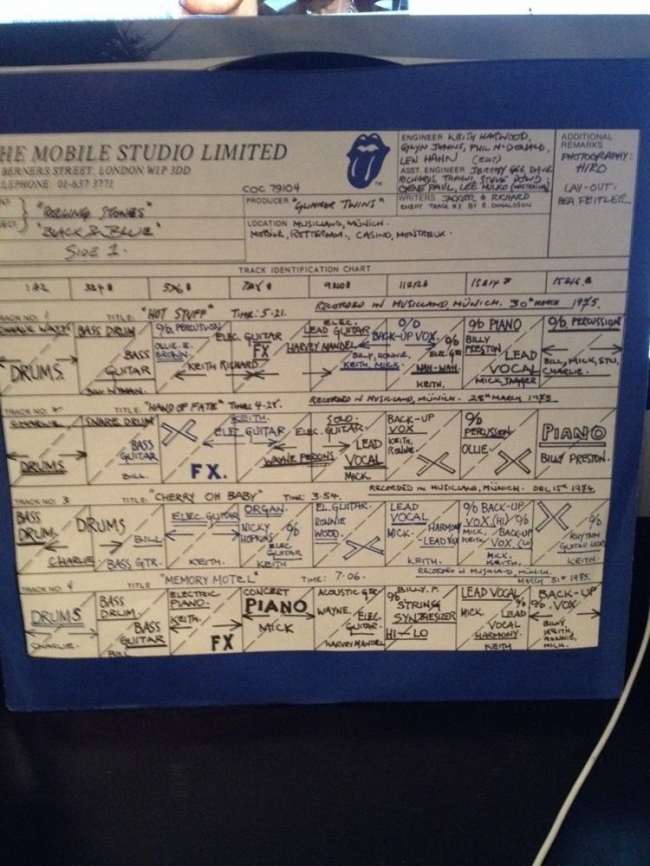 HE MOBILE STUDIO LIMITED
BERNERS STREET, LONDON W1P 3DD
LEPHONE: 01-637 3771
COC 79104
ENGINEER KEITH HARWOOD,
GLYN JOHNS, PHIL McDONALD,
LEW HAHN
ASST. ENGINEER JEREMY GEE, DAVE
GENE PAUL, LEE HULKO
WRITERS JAGGER & RICHARD
EXCEPT TRACK #3 BY E. DONALDSON
ADDITIONAL
REMARKS
PHOTOGRAPHY:
HIRO
LAY-OUT:
BEA FEITLER
"ROLLING STONES"
"BLACK & BLUE"
SIDE 1.
PRODUCER "GLIMMER TWINS"
LOCATION MUSICLAND, MUNICH.
MOBILE, ROTTERDAM, CASINO, MONTREUX.
TRACK IDENTIFICATION CHART
TITLE: "HOT STUFF" TIME: 5-21. RECORDED IN MUSICLAND MÜNICH. 30TH MARCH 1975.
CHARLIE WATTS
DRUMS.
BASS DRUM
BASS
GUITAR
BILL WYMAN.
% PERCUSSION
OLLIE. E.
BROWN.
ELEC. GUITAR
FX
KEITH RICHARD
ELEC.
LEAD GUITAR
HARVEY MANDEL
O/D
BACK-UP VOX.
BILLY, RONNIE,
KEITH, MICK.
%
ELEC. GTR
WAH-WAH.
KEITH.
% PIANO
BILLY
PRESTON
LEAD
VOCAL
MICK JAGGER
% PERCUSSION
BILL, MICK, STU,
CHARLIE.
TRACK NO. 2 TITLE: "HAND OF FATE" TIME: 4-28. RECORDED IN MUSICLAND, MÜNICH. 25TH MARCH, 1975.
CHARLIE
DRUMS.
SNARE DRUM
BASS
GUITAR
BILL.
KEITH.
ELEC GUITAR
FX.
SOLO
ELEC. GUITAR.
WAYNE PERKINS
LEAD
VOCAL
MICK
BACK-UP
VOX
KEITH,
RONNIE.
%
PERCUSSION
OLLIE
PIANO
BILLY PRESTON.
TRACK NO. 3 TITLE: "CHERRY OH BABY" TIME: 3-54. RECORDED IN MUSICLAND, MÜNICH. DEC 15TH 1974.
BASS
DRUM
CHARLIE
DRUMS
BILL
BASS GTR.
ELEC GUITAR
KEITH.
ORGAN.
NICKY
HOPKINS
%
ELEC
GUITAR
KEITH
EL. GUITAR.
RONNIE
WOOD.
LEAD
VOCAL
MICK.
HARMONY
LEAD VOX
KEITH.
% BACK-UP
VOX (HI) %
MICK, KEITH.
BACK-UP
VOX. (LO)
MICK
KEITH.
%
RHYTHM
KEITH
TRACK NO. 4 TITLE "MEMORY MOTEL" TIME: 7-06. RECORDED IN MUSICLAND, MÜNICH.
MARCH 31ST 1975.
DRUMS
CHARLIE.
BASS
DRUM.
BASS
GUITAR
BILL
ELECTRIC
PIANO.
KEITH.
FX
CONCERT
PIANO
MICK
ACOUSTIC GTR
WAYNE.
ELEC
GUITAR.
HARVEY MANDEL
BILLY. P.
%
STRING
SYNTHESIZER
HI-LO
LEAD VOCAL
MICK
%
LEAD
VOCAL
HARMONY.
KEITH
BACK-UP
% VOX.
BILLY,
KEITH,
RONNIE,
MICK.